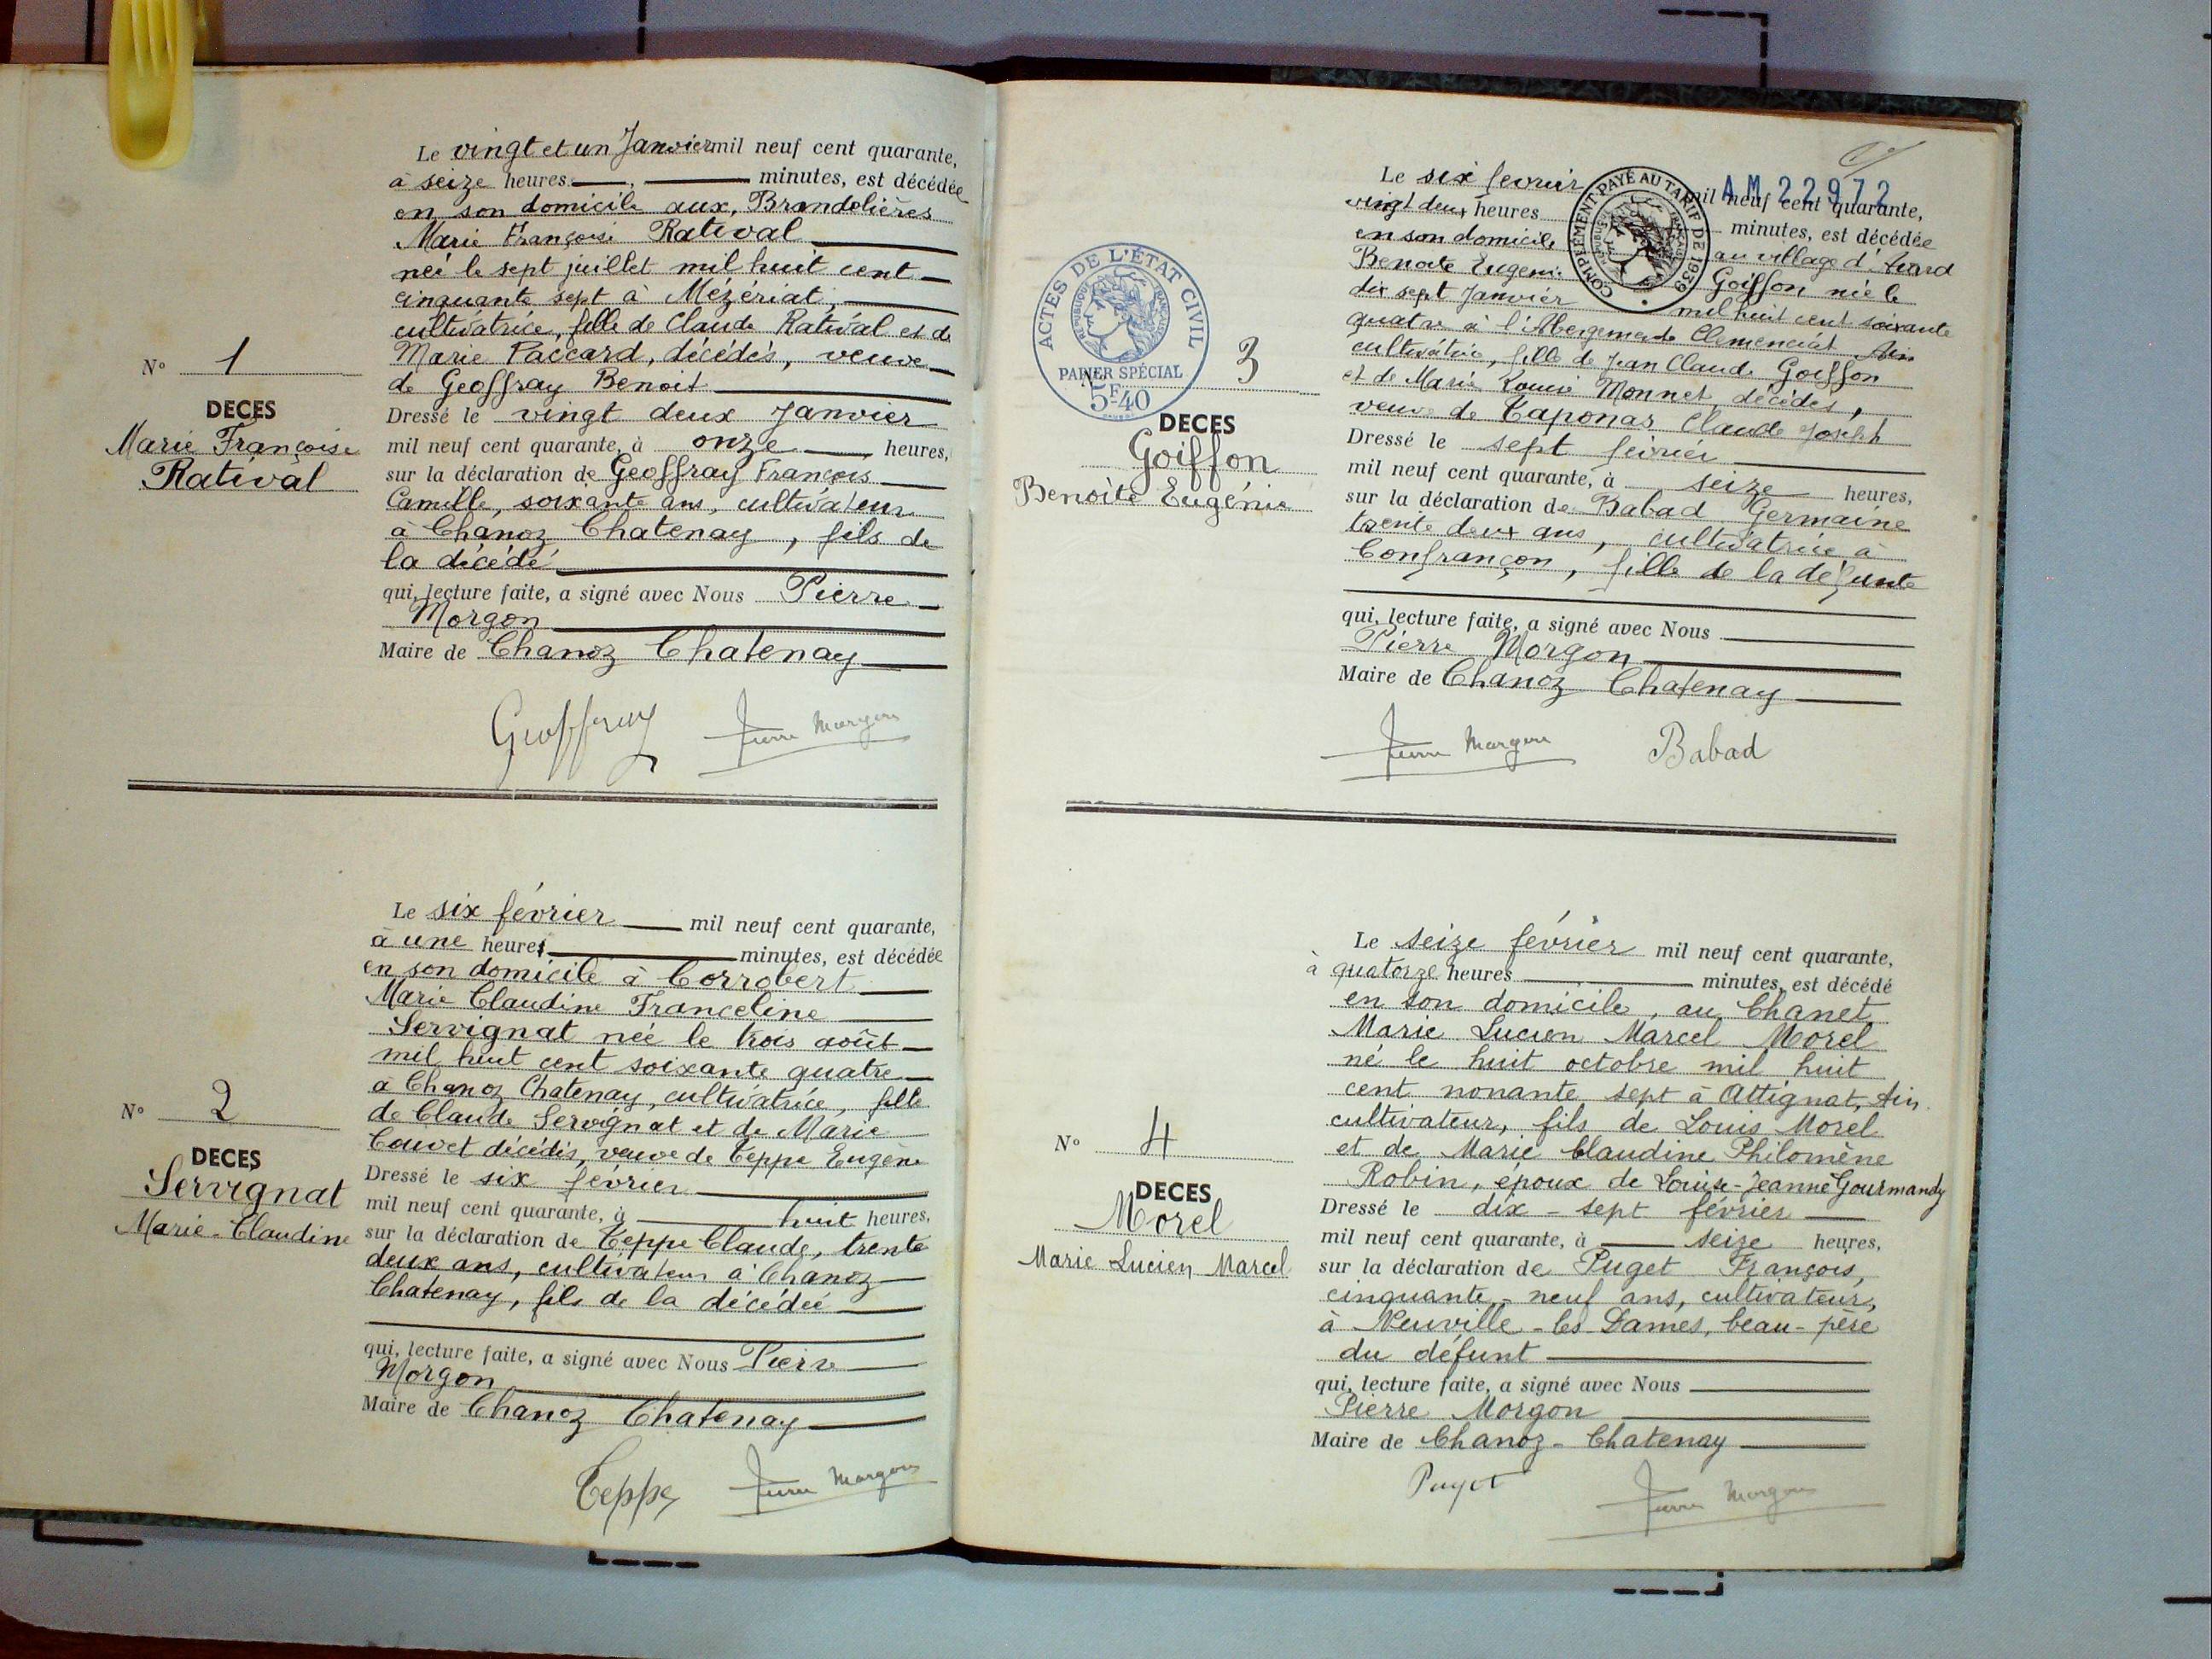 Le vingt et un Janvier mil neuf cent quarante,
à seize heures, minutes, est décédée
en son domicile aux, Brandelières
Marie Françoise Ratival
née le sept juillet mil huit cent
cinquante sept à Mézériat,
cultivatrice, fille de Claude Ratival et de
Marie Paccard, décédés, veuve
de Geoffray Benoit
N° 1
DECES
Marie Françoise
Ratival
Dressé le vingt deux Janvier
mil neuf cent quarante, à onze heures,
sur la déclaration de Geoffray François
Camille, soixante ans, cultivateur
à Chanoz Chatenay, fils de
la décédé
qui, lecture faite, a signé avec Nous Pierre
Morgon
Maire de Chanoz Chatenay
Geoffray Pierre Morgon
Le six février mil neuf cent quarante,
à une heures minutes, est décédée
en son domicile à Corrobert
Marie Claudine Franceline
Servignat née le trois août
mil huit cent soixante quatre
à Chanoz Chatenay, cultivatrice, fille
de Claude Servignat et de Marie
Couvet décédés, veuve de Teppe Eugène
N° 2
DECES
Servignat
Marie-Claudine
Dressé le six février
mil neuf cent quarante, à huit heures,
sur la déclaration de Teppe Claude, trente
deux ans, cultivateur à Chanoz
Chatenay, fils de la décédée
qui, lecture faite, a signé avec Nous Pierre
Morgon
Maire de Chanoz Chatenay
Teppe Pierre Morgon
AM 22972
COMPLÉMENT PAYÉ AU TARIF DE 1939
Le six fevrier mil neuf cent quarante,
vingt deux heures minutes, est décédée
en son domicile au village d'
Benoite Eugenie Goiffon née le
dix sept Janvier mil huit cent soixante
quatre à l'Abergement Clemenciat Ain
cultivatrice, fille de Jean Claude Goiffon
et de Marie Monnet, décédés,
veuve de Taponas Claude Joseph
ACTES DE L'ÉTAT CIVIL
RÉPUBLIQUE FRANÇAISE
PAPIER SPÉCIAL
5F40
3
DECES
Goiffon
Benoite Eugénie
Dressé le sept février
mil neuf cent quarante, à seize heures,
sur la déclaration de Babad Germaine
trente deux ans, cultivatrice à
Confrançon, fille de la défunte
qui, lecture faite, a signé avec Nous
Pierre Morgon
Maire de Chanoz Chatenay
Pierre Morgon Babad
Le seize février mil neuf cent quarante,
à quatorze heures minutes, est décédé
en son domicile, au Chanet
Marie Lucien Marcel Morel
né le huit octobre mil huit
cent nonante sept à Attignat, Ain
cultivateur, fils de Louis Morel
et de Marie Claudine Philomène
Robin, époux de Louise-Jeanne Gourmandy
N° 4
DECES
Morel
Marie Lucien Marcel
Dressé le dix-sept février
mil neuf cent quarante, à seize heures,
sur la déclaration de Puget François,
cinquante-neuf ans, cultivateur,
à Neuville-les-Dames, beau-père
du défunt
qui, lecture faite, a signé avec Nous
Pierre Morgon
Maire de Chanoz-Chatenay
Puget Pierre Morgon